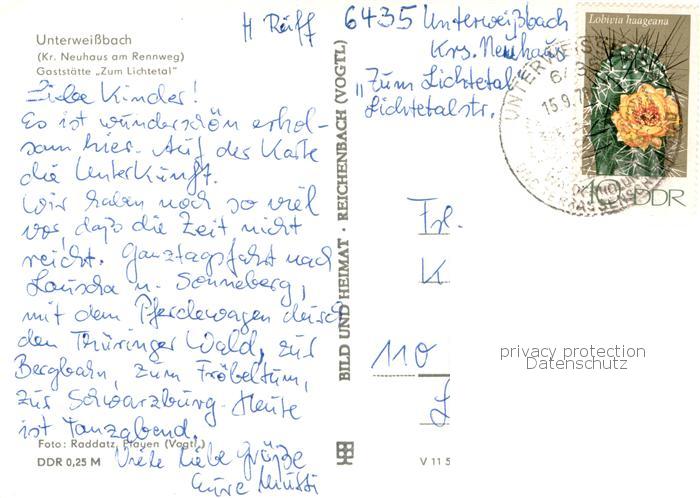 Unterweißbach
(Kr. Neuhaus am Rennweg)
Gaststätte „Zum Lichtetal“
H Rüff
6435 Unterweißbach
Krs. Neuhaus
„Zum Lichtetal“
Lichtetalstr.
Liebe Kinder!
Es ist wunderschön erhol-
sam hier. Auf der Karte
die Unterkunft.
Wir haben noch so viel
vor, daß die Zeit nicht
reicht. Ganztagsfahrt nach
Lauscha u. Sonneberg,
mit dem Pferdewagen durch
den Thüringer Wald, zur
Bergbahn, zum Fröbelturm,
zur Schwarzburg. Heute
ist Tanzabend.
Viele liebe Grüße
Eure Mutti
Foto: Raddatz, Plauen (Vogtl.)
DDR 0,25 M
BILD UND HEIMAT · REICHENBACH (VOGTL)
V 11 5
Lobivia haageana
10 DDR
UNTERWEISS
15.9.7
Frl.
K
110
L
privacy protection
Datenschutz